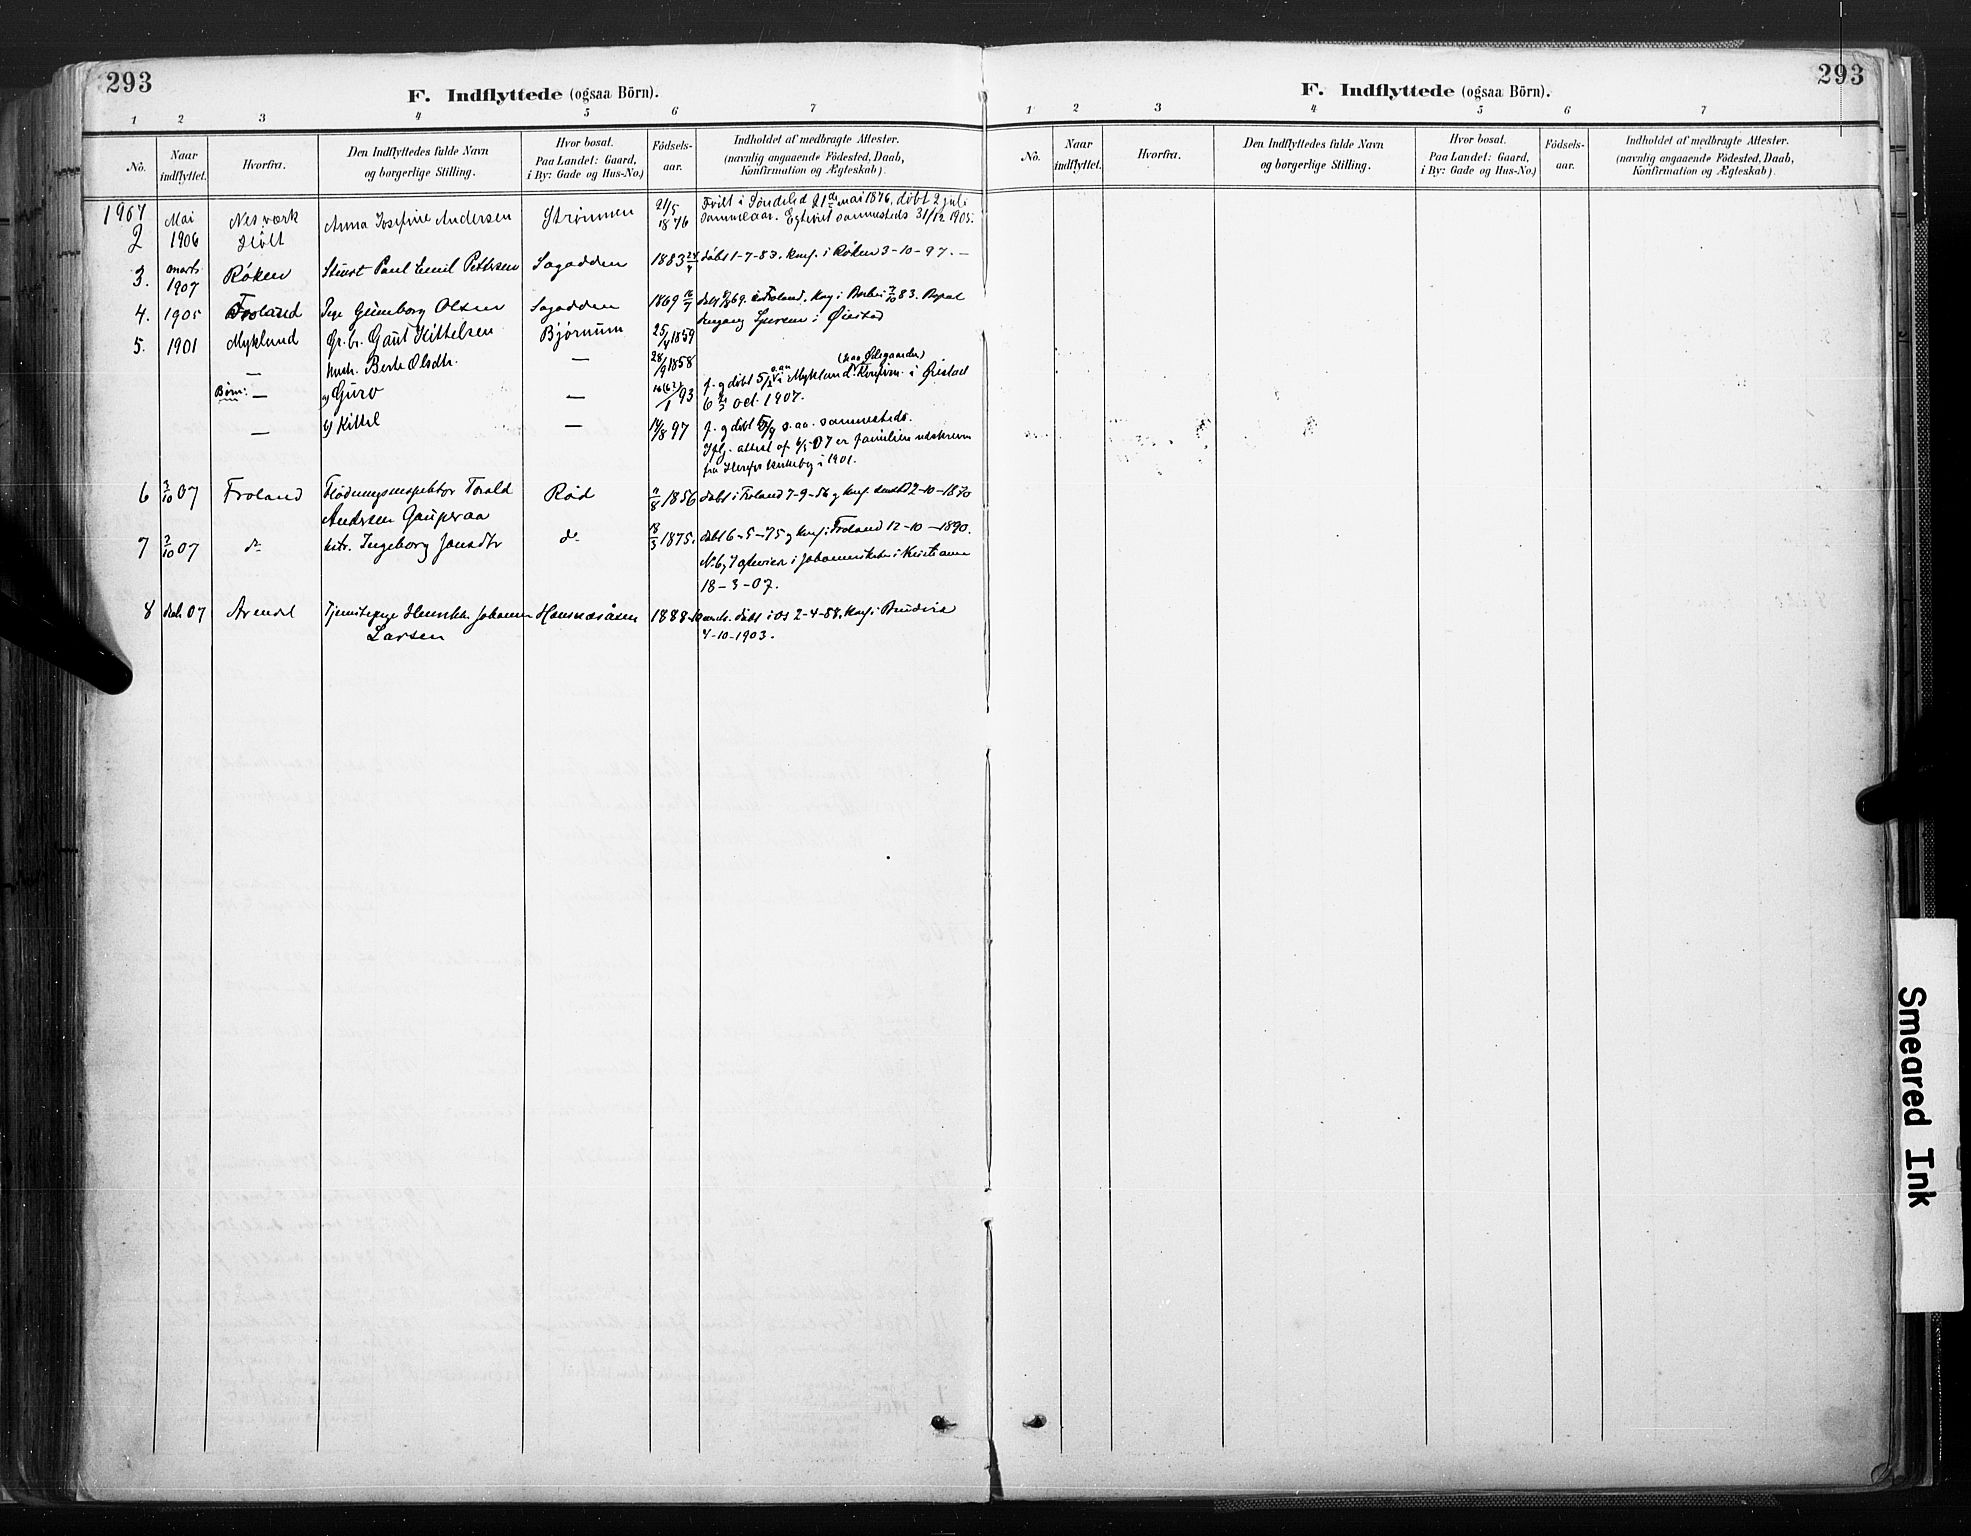 293
F. Indflyttede (ogsaa Börn).
1 2 3 4 5 6 7
No. Naar indflyttet. Hvorfra. Den Indflyttedes fulde Navn og borgerlige Stilling. Hvor bosat. Paa Landet: Gaard, i By: Gade og Hus-No.) Födsels-aar. Indholdet af medbragte Attester. (navnlig angaaende Födested, Daab, Konfirmation og Ægteskab).
1907
2 Mai 1906 Nes værk Holt Anna Josefine Andersen Strømmen 21/5 1876 Født i Søndeled 21de mai 1876, døbt 2 juli
samme aar. Egteviet sammesteds 31/12 1905.
3. marts 1907 Røken Paul Emil Pettersen Sagodden 1883 døbt 1-7-83. konf. i Røken 3-10-97. —
4. 1905 Froland Pige Gunborg Olsen Sagodden 1869 døbt 69. i Froland, konf. i 83.
i Øiestad
5. 1901 Mykland Gr.br. Gaut Kittelsen Bjørnum 25/4 1859
— hustr. Berte Olsdtr. — 28/9 1858
Børn: — Guro — 93 f. g døbt i Mykland. Konfirm. i Øiestad
oct. 1907.
— Kittel — 14/8 97 f. g døbt s. aa. sammesteds.
Iflg. attest af 07 er familien udskreven
fra i 1901.
6 3/10 07 Froland Flødningsinspektør Torald Rød 1856 døbt i Froland 7-9-56 g konf. 2-10-1870
Andersen Gauperaa
7 3/10 07 do hstr. Ingeborg Jonsdtr do 18/3 1875. døbt 6-5-75 g konf. i Froland 12-10-1890.
No 6 g 7 i Johanneskirken i Kristiania
18-3-07.
8 07 Arendal Tjenestepige Johanne 1888 døbt i Os 2-4-88, konf. i
Larsen 4-10-1903.
293
F. Indflyttede (ogsaa Börn).
1 2 3 4 5 6 7
No. Naar indflyttet. Hvorfra. Den Indflyttedes fulde Navn og borgerlige Stilling. Hvor bosat. Paa Landet: Gaard, i By: Gade og Hus-No.) Födsels-aar. Indholdet af medbragte Attester. (navnlig angaaende Födested, Daab, Konfirmation og Ægteskab).
Smeared Ink